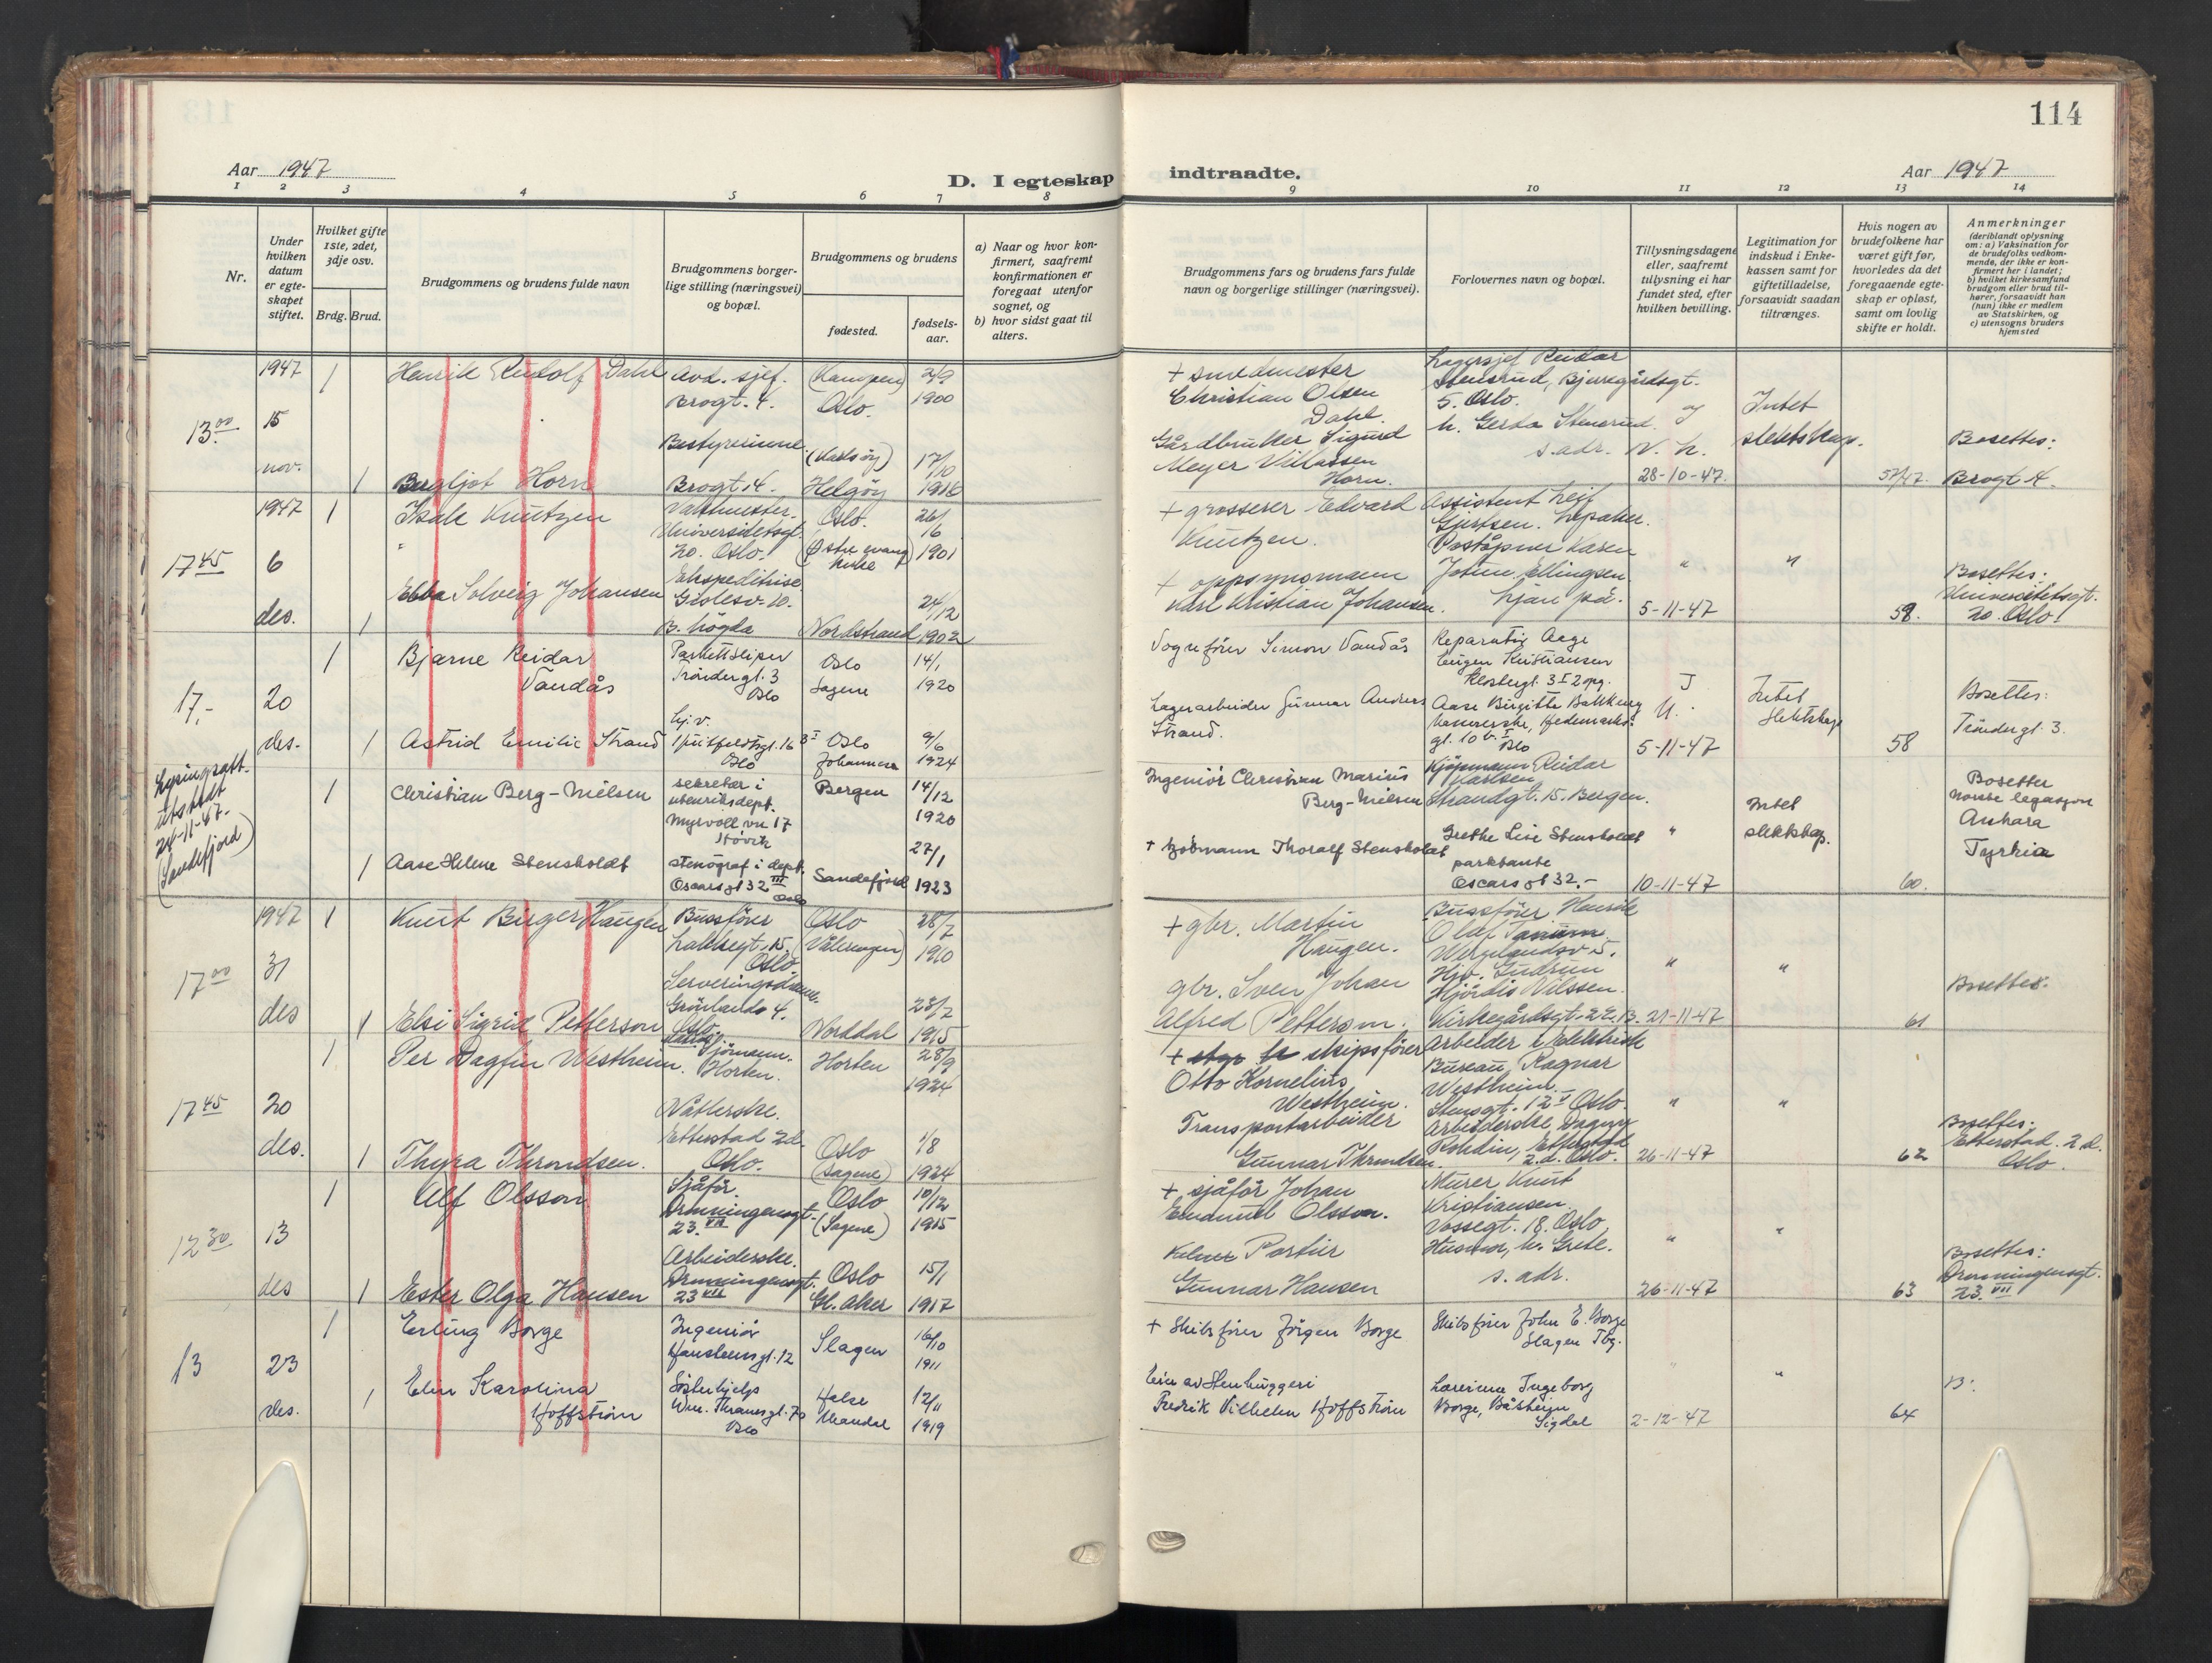 114
Aar 1947
D. I egteskap indtraadte.
Aar 1947
1 2 3 4 5 6 7 8 9 10 11 12 13 14
Nr.
Under hvilken datum er egteskapet stiftet.
Hvilket gifte 1ste, 2det, 3dje osv.
Brdg. Brud.
Brudgommens og brudens fulde navn
Brudgommens borgerlige stilling (næringsvei) og bopæl.
Brudgommens og brudens
fødested.
fødselsaar.
a) Naar og hvor konfirmert, saafremt konfirmationen er foregaat utenfor sognet, og
b) hvor sidst gaat til alters.
Brudgommens fars og brudens fars fulde navn og borgerlige stillinger (næringsvei).
Forlovernes navn og bopæl.
Tillysningsdagene eller, saafremt tillysning ei har fundet sted, efter hvilken bevilling.
Legitimation for indskud i Enkekassen samt for giftetilladelse, forsaavidt saadan tiltrænges.
Hvis nogen av brudefolkene har været gift før, hvorledes da det foregaaende egteskap er opløst, samt om lovlig skifte er holdt.
Anmerkninger
(deriblandt oplysning om: a) Vaksination for de brudefolks vedkommende, der ikke er konfirmert her i landet; b) hvilket kirkesamfund brudgom eller brud tilhører, forsaavidt han (hun) ikke er medlem av Statskirken, og c) utensogns bruders hjemsted
13.00
1947
15
nov.
1
Henrik Rudolf Dahl
Avd. sjef.
Brogt. 4.
(Kampen)
Oslo.
2/9
1900
+ smedmester
Christian Olsen
Dahl.
Lagersjef Reidar
Stensrud, Bjuregårdsgt.
5. Oslo.
h. Gerda Stensrud.
s. adr.
Intet
slektskap.
1
Bergljot Horn
Bestyrerinne.
Brogt. 4.
(Karlsøy)
Helgøy
17/10
1916
Gårdbruker Sigurd
Meyer Villassen
Horn.
28-10-47.
57/47.
Bosettes:
Brogt 4.
17.45
1947
6
des.
1
Isak Knutzen
Vaktmester.
Universitetsgt.
20. Oslo.
Oslo.
26/6
1901
+ grosserer Edvard
Knutzen.
Assistent Leif
Gjertsen.
Poståpner Karen
1
Ebba Solveig Johansen
Ekspeditrise
B. høgda
Nordstrand
24/12
1902
+ oppsynsmann
Karl Kristian Johansen.
Ellingsen.
Ljan på.
5-11-47
59.
Bosettes:
Universitetsgt.
20. Oslo.
17,-
20
des.
1
Bjarne Reidar
Vandås
Parkettsliper
Trøndergt. 3
Oslo
Oslo
Sagene
14/1
1920
Vognfører Simon Vandås
Reparatør Aage
Eugen Kristiansen
Klostergt. 3 I 2 opg.
Intet
slektskap
1
Astrid Emilie Strand
hj.v.
Oslo
Oslo
Johannes
9/6
1924
Lagerarbeider Gunnar Anders
Strand.
Aase Birgitte Bakkeng
gt. 10 b. I
Oslo
5-11-47
58
Bosettes:
Trøndergt. 3.
Lysingsatt.
utstedt
24-11-47.
(Sandefjord)
1
Christian Berg-Nielsen
sekretær i
utenriksdept.
Myrvoll vn 17
Høvik
Bergen
14/12
1920
Ingeniør Christian Marius
Berg-Nielsen
Kjøpmann Reidar
Karlsen
Strandgt. 15. Bergen.
Intet
slektskap.
1
Aase Helene Stensholdt
stenograf i dept.
Oscars gt 32 III
Oslo
Sandefjord
27/1
1923
+ sjømann Thoralf Stensholdt
Grethe Lise Stensholdt
Oscars gt 32.-
10-11-47
60.
Bosetter
Norske legasjon
Ankara
Tyrkia
17.00
1947
31
des
1
Knut Birger Haugen
Bussfører
Oslo
Oslo
(Vålerengen)
28/7
1910
+ gbr. Martin
Haugen.
Bussfører Henrik
Olaf Tanum.
Wergelandsv. 5.
1
Elsi Sigrid Petterson
Grønlands 4.
Oslo.
Norddal
28/7
1915
gbr. Sven Johan
Alfred Petterson.
Hjv. Gudrun
Hjørdis Nilssen.
Kirkegårdsgt. 22. B.
21-11-47
61
Bosettes:
17.45
20
des.
1
Per Dagfin Westheim.
Sjømann.
Horten.
Horten
28/9
1924
+ skipsfører
Otto Kornelius
Westheim.
Arbeider v Elektrisk
Bureau, Ragnar
Westheim.
Stensgt. 12 V Oslo.
1
Thyra Throndsen.
Etterstad 2d.
Oslo.
Oslo
(Sagene)
1/8
1924
Transportarbeider
Gunnar Throndsen.
Arbeiderske Dagny
Rohdin, Etterstad
2.d. Oslo.
26-11-47
62
Bosettes:
Etterstad. 2 d.
Oslo.
12.30
13
des
1
Alf Olsson
Sjåfør.
Dronningensgt.
23. VII
Oslo
(Sagene)
10/12
1915
+ sjåfør Johan
Emanuel Olsson.
Murer Knut
Kristiansen.
Vossegt. 18. Oslo.
Husmor, h. Grete.
s. adr.
1
Ester Olga Hansen
Arbeiderske.
Dronningensgt.
23 VII
Oslo
Gl. Aker
15/1
1917
Portier
Gunnar Hansen
26-11-47
63
Bosettes:
Dronningensgt.
23. VII
13
23
des.
1
Erling Borge
Ingeniør
Slagen
16/10
1911
+ Skibsfører Jørgen Borge
Skibsfører John E. Borge
Slagen Tbg.
1
Elin Karolina
Hoffstrøm
Søsterhjelp
Wm. Thranesgt. 70
Oslo
Halse
Mandal
12/11
1919
Eier av Stenhuggeri
Fredrik Vilhelm Hoffstrøm
Lærerinne Ingeborg
Borge,
Sigdal
2-12-47
64
B: